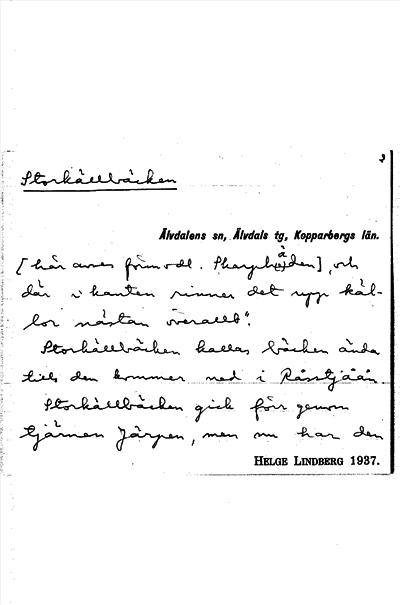 Storkällbäcken
Älvdalens sn, Älvdals tg, Kopparbergs län.
[här avses förmodl. Skarphåden], och
där i kanten rinner det upp käl-
lor nästan överallt".
Storkällbäcken kallas bäcken ända
tills den kommer ned i Råsstjään
Storkällbäcken gick förr genom
tjärnen Järpen, men nu har den
HELGE LINDBERG 1937.